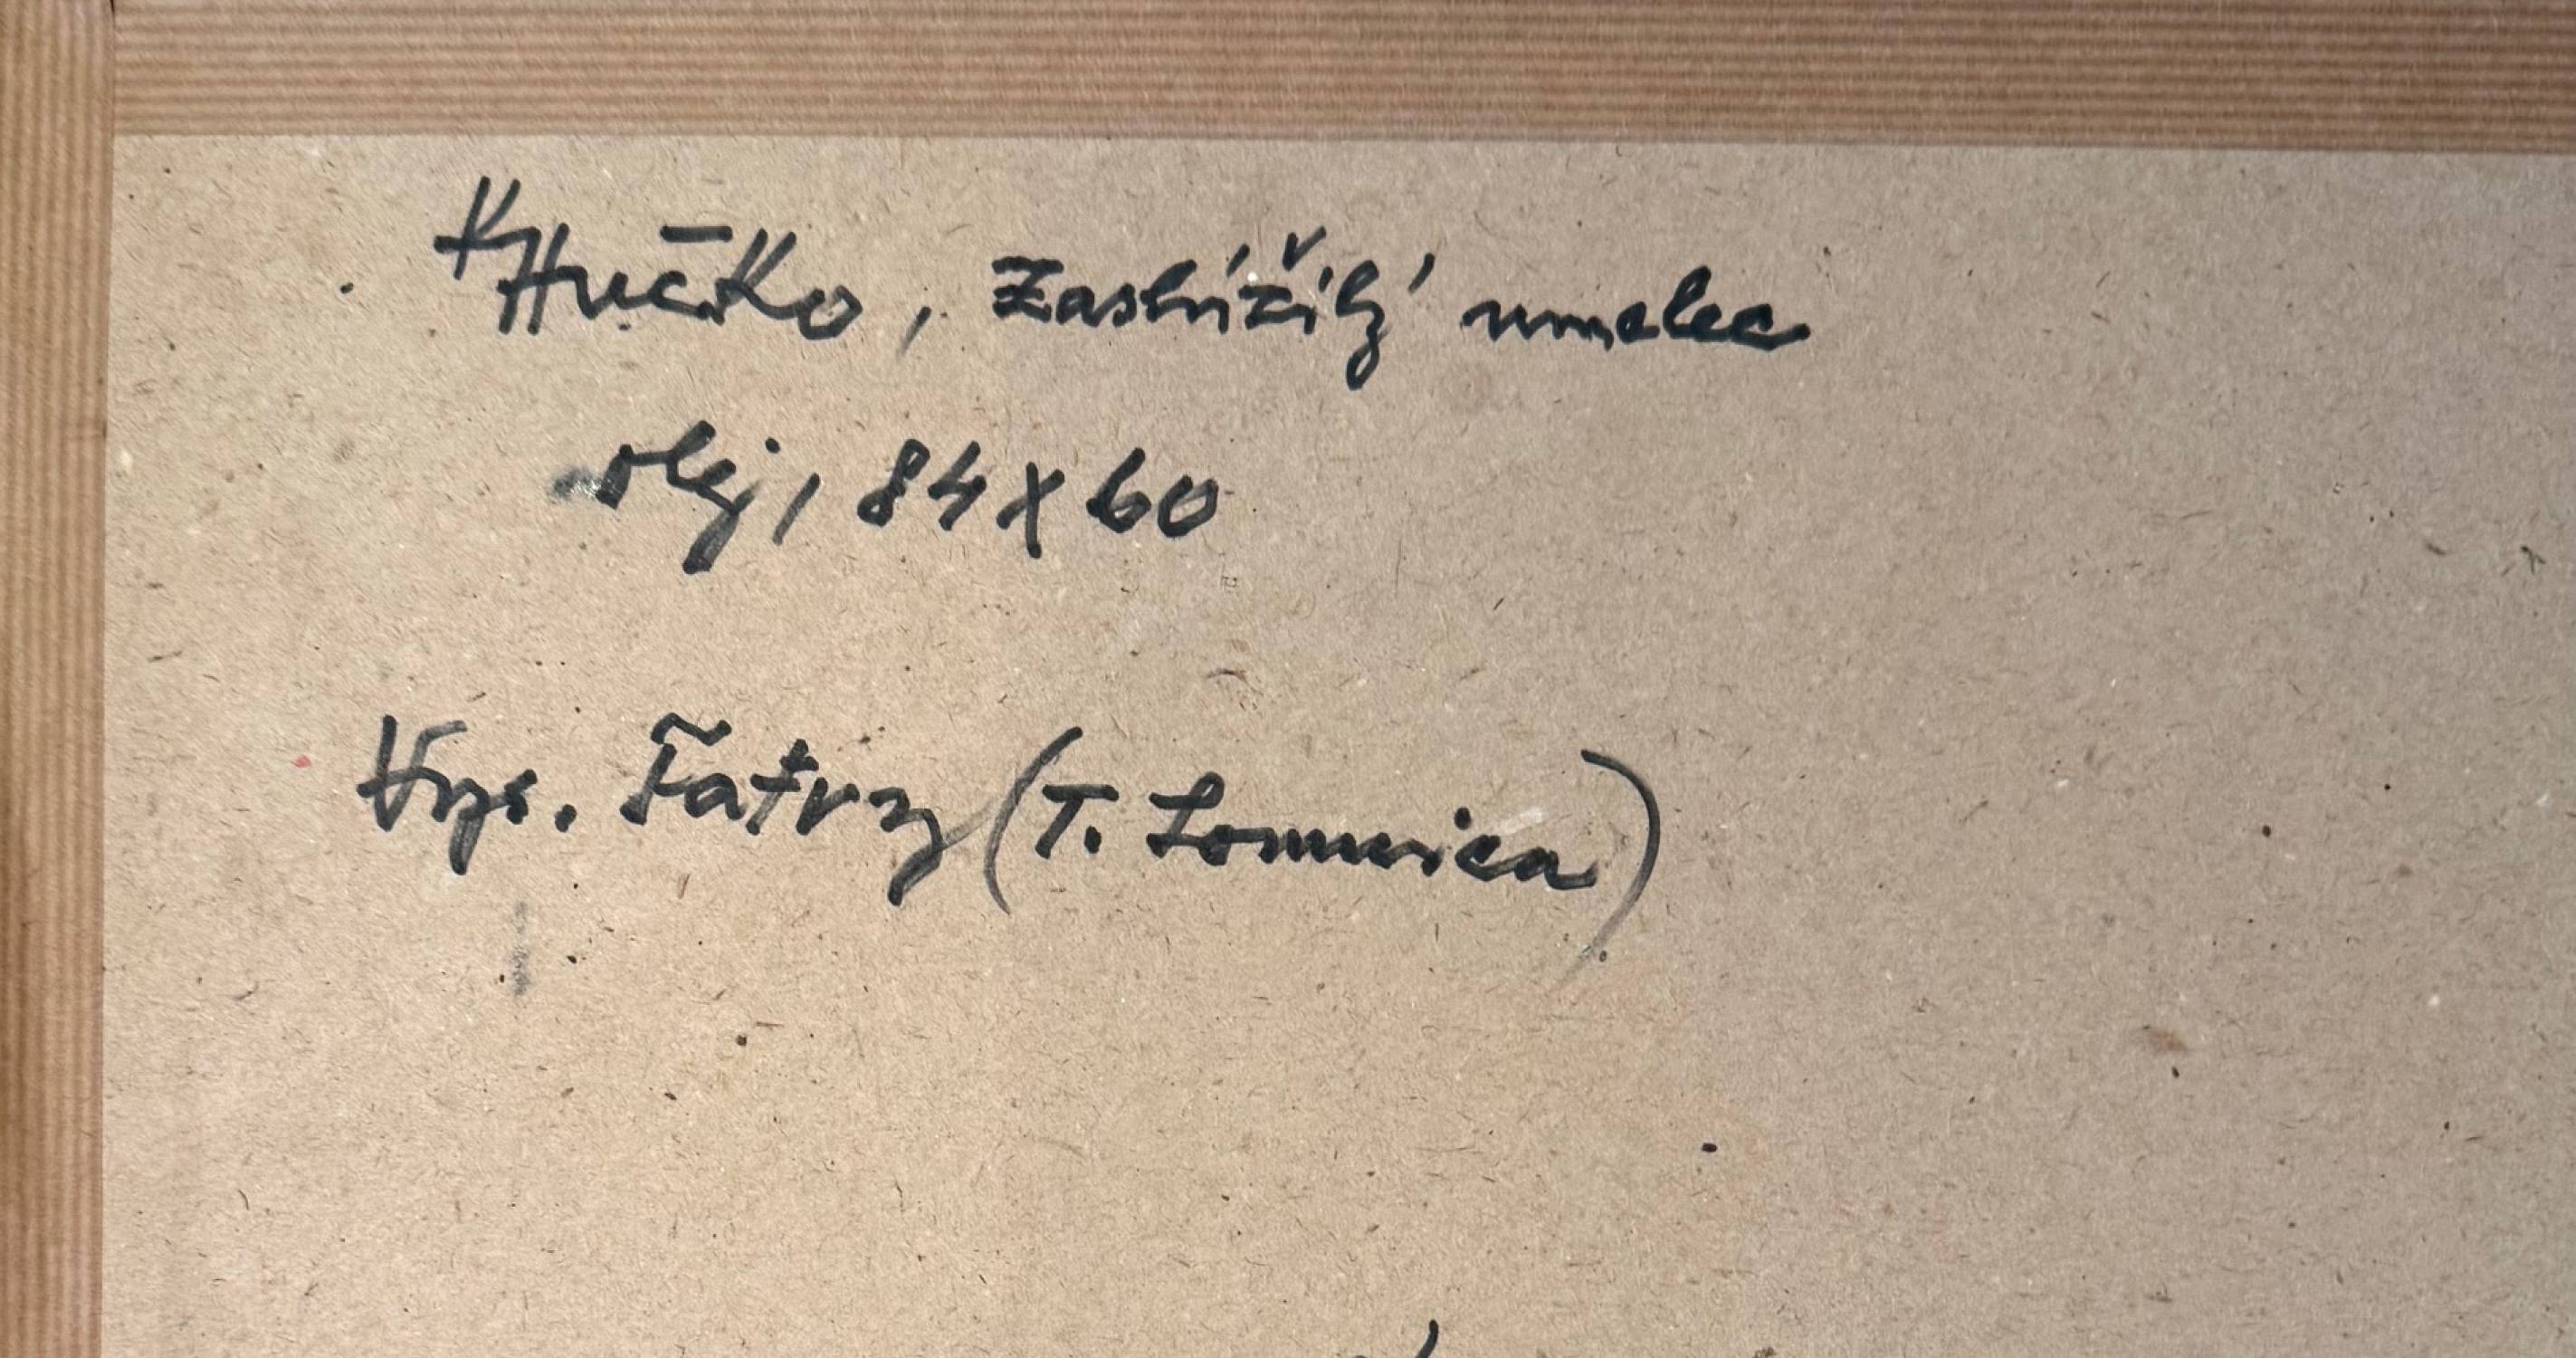 K Hučko, Zaslúžilý umelec
olej, 84 x 60
Vys. Tatry (T. Lomnica)